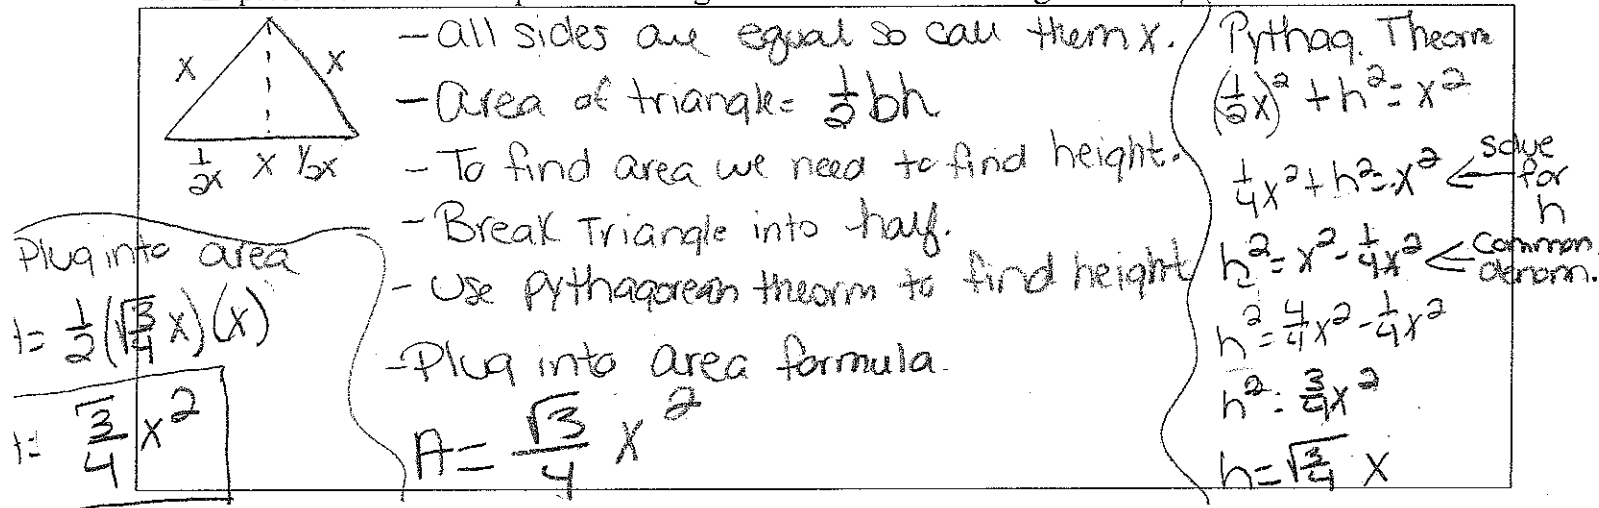 x x
1/2x x 1/2x
- All sides are equal so call them x.
- Area of triangle = 1/2 bh
- To find area we need to find height.
- Break Triangle into half.
- Use pythagorean theorm to find height
- Plug into area formula.
A = √3/4 x²
Pythag. Theorm
(1/2x)² + h² = x²
1/4x² + h² = x² ← solve for h
h² = x² - 1/4x² ← common denom.
h² = 4/4x² - 1/4x²
h² = 3/4x²
h = √3/4 x
Plug into area
= 1/2(√3/4 x)(x)
= √3/4 x²